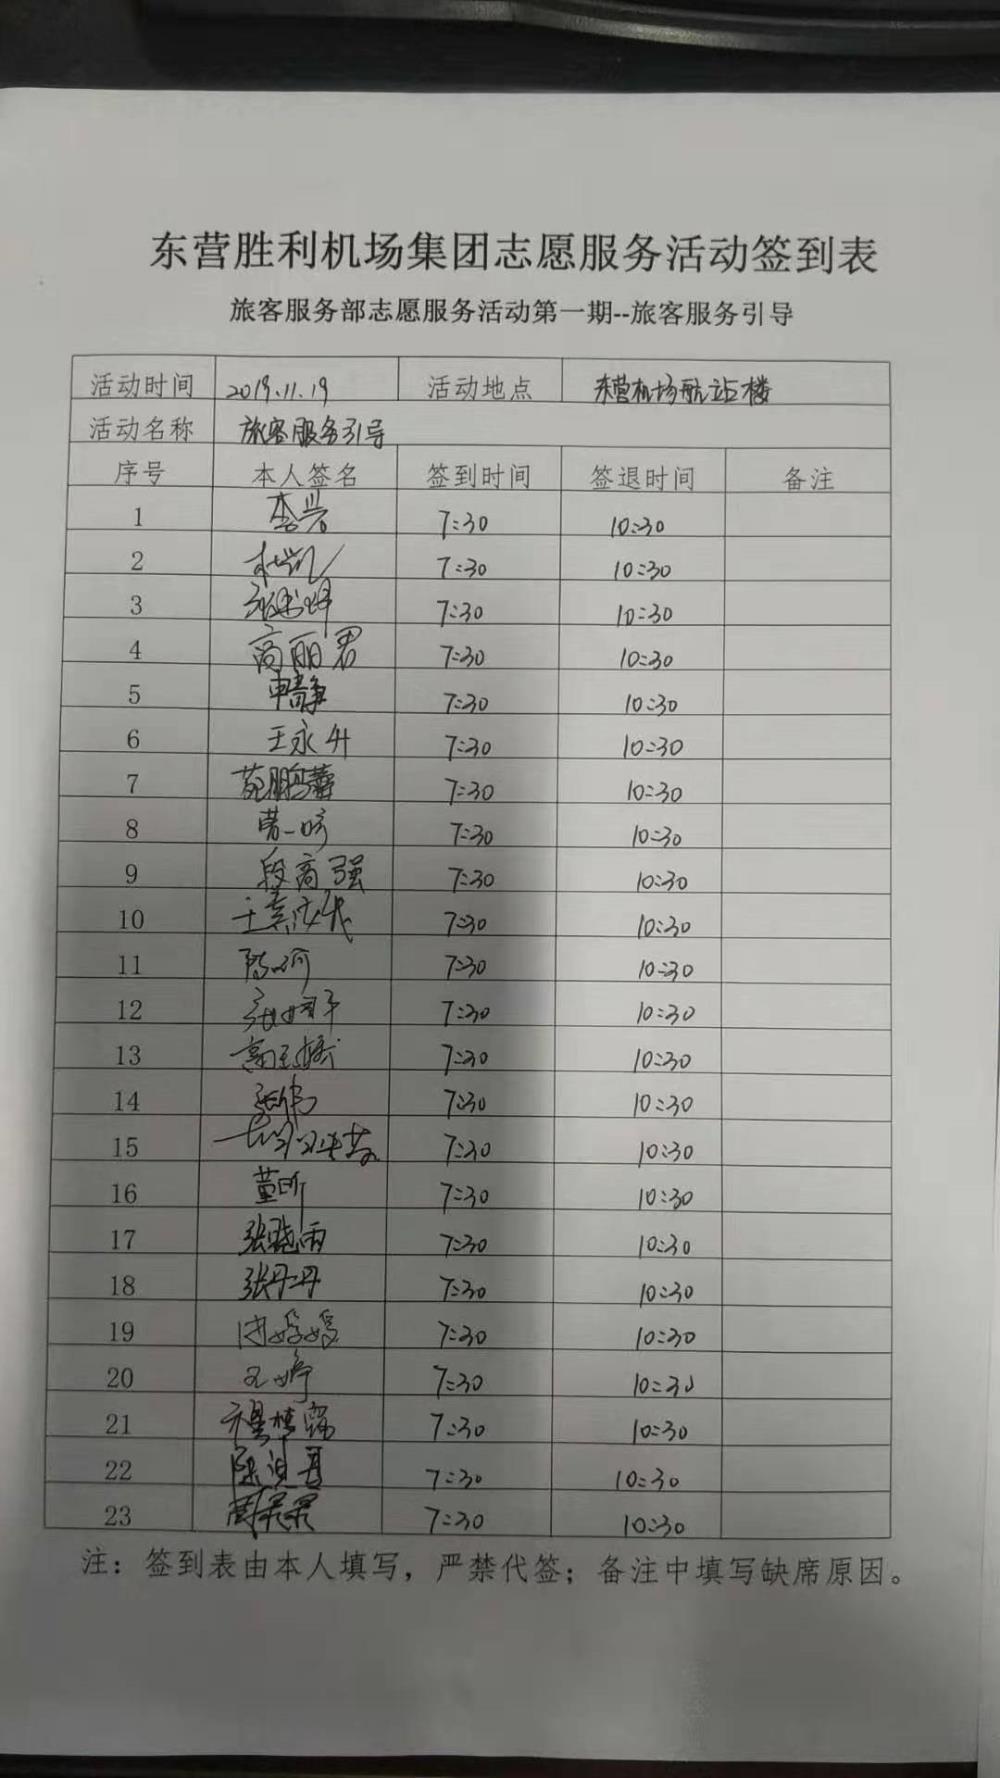 东营胜利机场集团志愿服务活动签到表
旅客服务部志愿服务活动第一期--旅客服务引导
活动时间 2019.11.19 活动地点 东营机场航站楼
活动名称 旅客服务引导
序号 本人签名 签到时间 签退时间 备注
1 7:30 10:30
2 7:30 10:30
3 7:30 10:30
4 高丽君 7:30 10:30
5 申静 7:30 10:30
6 王永升 7:30 10:30
7 苑鹏蕾 7:30 10:30
8 7:30 10:30
9 段高强 7:30 10:30
10 7:30 10:30
11 7:30 10:30
12 7:30 10:30
13 7:30 10:30
14 张伟 7:30 10:30
15 7:30 10:30
16 董昕 7:30 10:30
17 张晓雨 7:30 10:30
18 张丹丹 7:30 10:30
19 7:30 10:30
20 王婷 7:30 10:30
21 7:30 10:30
22 7:30 10:30
23 7:30 10:30
注：签到表由本人填写，严禁代签；备注中填写缺席原因。